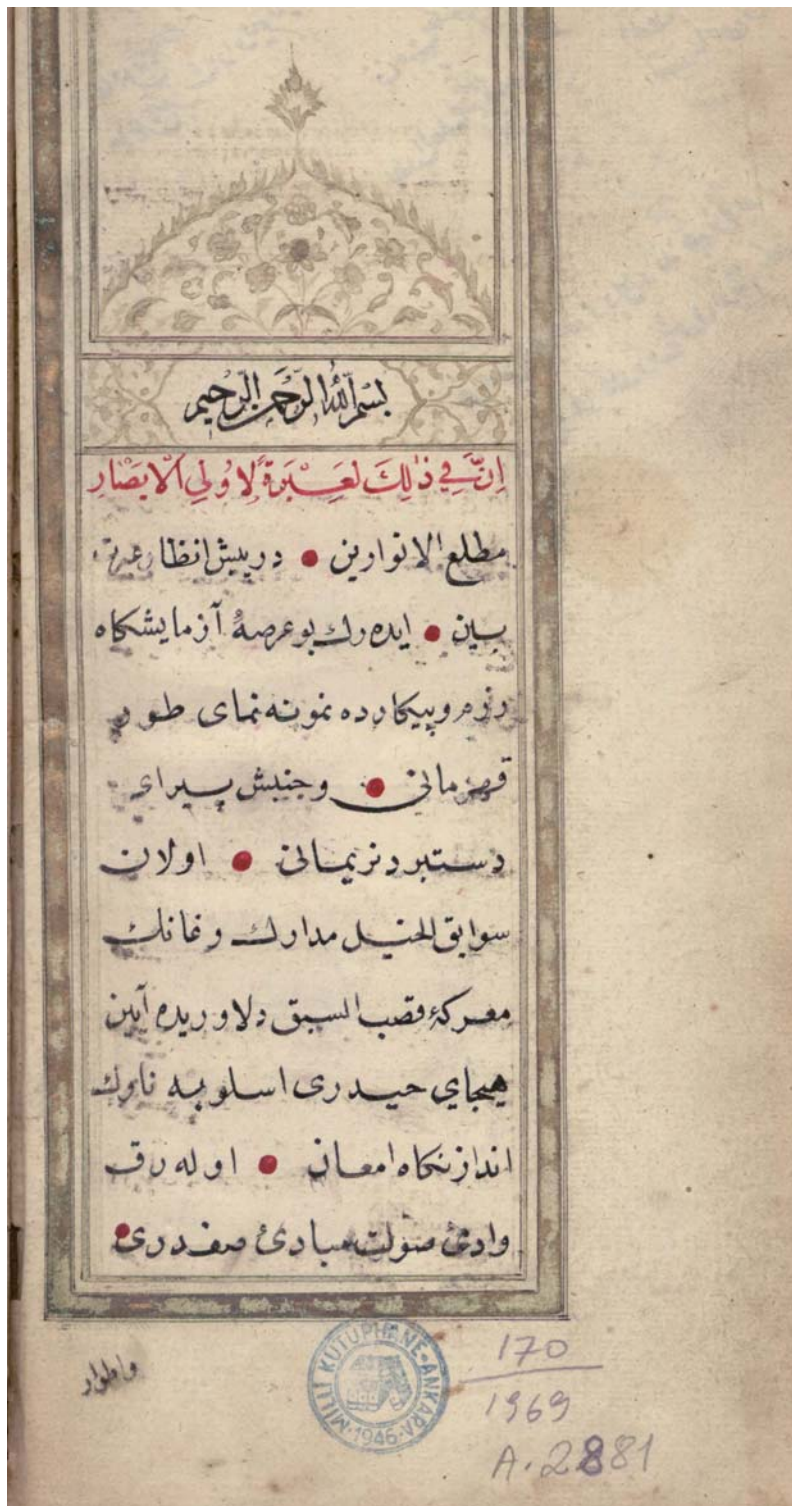 بسم الله الرحمن الرحيم
اِنَّ فِي ذٰلِكَ لَعِبْرَةً لِاُولِي الْاَبْصَارِ
مطلع الانوارین ● درپیش انظار عبرت
بین ● ایده رك بو عرصهٔ آزمایشکاه
رزم وپیکارده نمونه نمای طور
قهرمانی ● وجنبش پیرای
دستبرد نریمانی ● اولان
سوابق الخیل مدارك وغانك
معرکهٔ قصب السبق دلاوریده آیین
هیجای حیدری اسلوبه ناوك
انداز نکاه امعان ● اوله رق
وادئ صولت مبادئ صفدری ●
واطوار
MİLLİ KÜTÜPHANE·ANKARA
·1946·
170
1969
A.2881